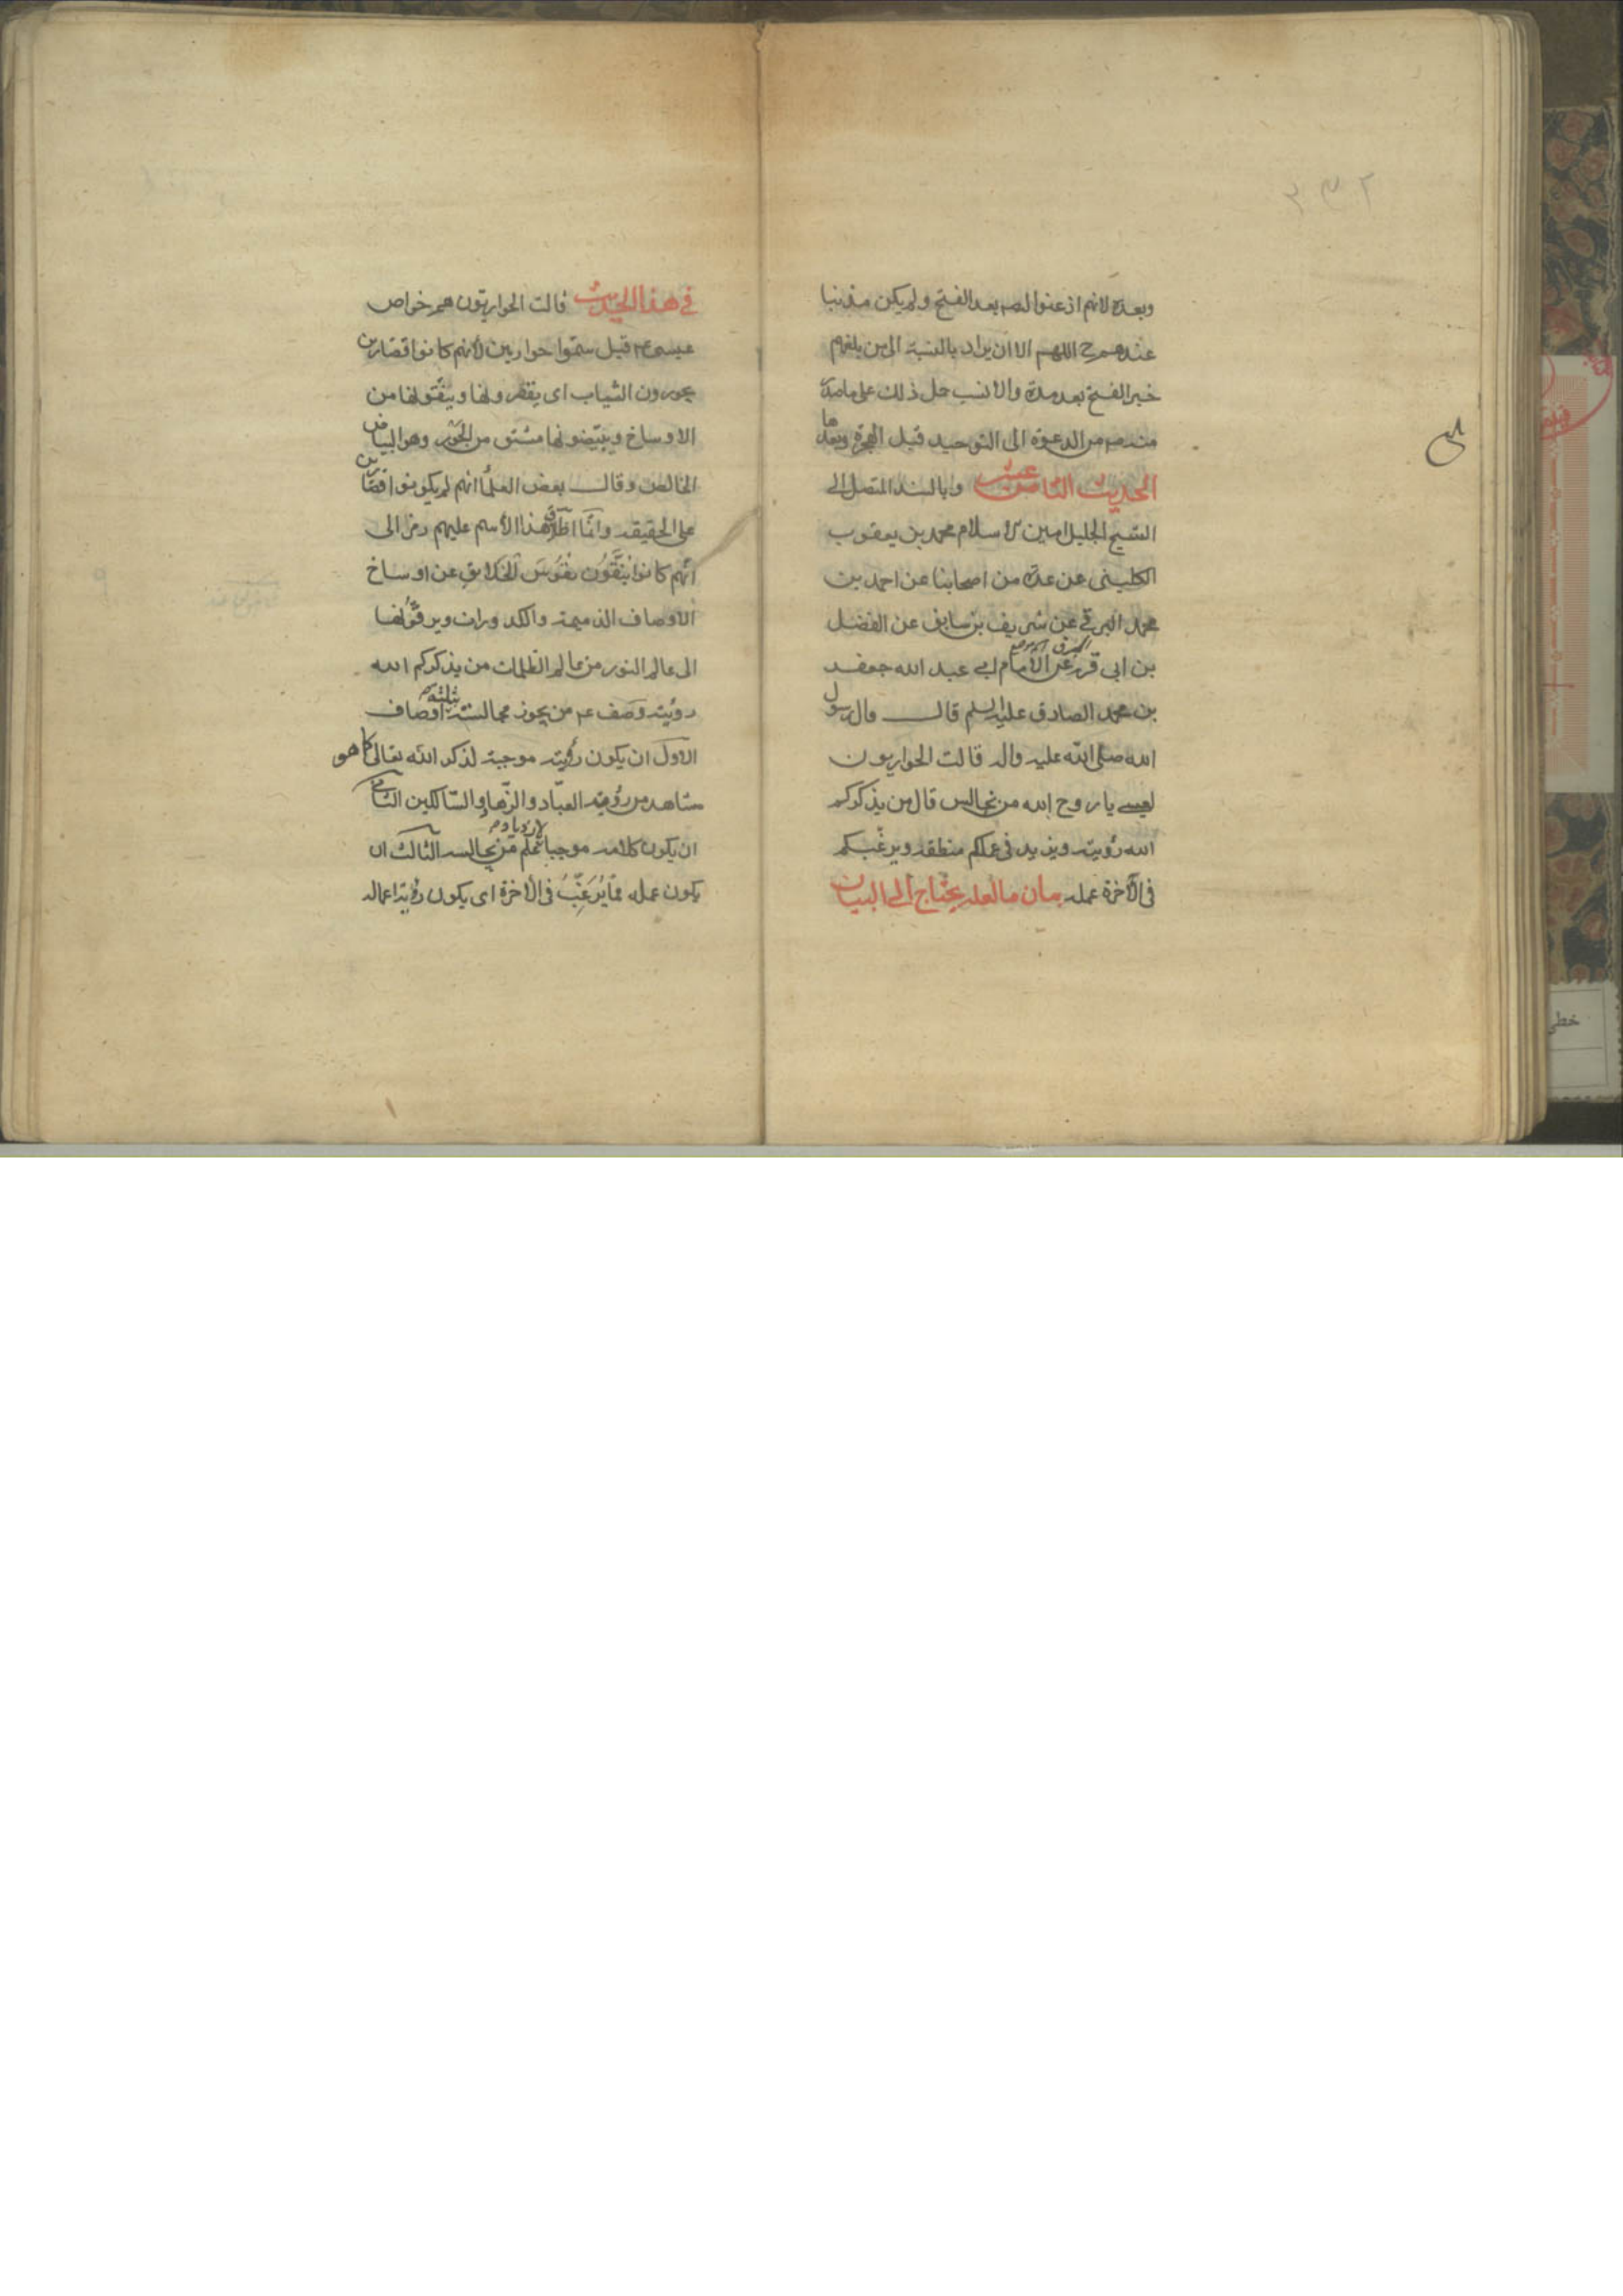 وبعده لانهم اذعنوا له بعد الفتح ولم يكن مذنبا
عندهم ح اللهم الا ان يراد بالنسبة الى من بلغهم
خبر الفتح بعد مدة والانسب حمل ذلك على ما صدر
منه من الدعوة الى التوحيد قبل الهجرة وبعدها
الحديث الثامن عشر وبالسند المتصل الى
الشيخ الجليل امين الاسلام محمد بن يعقوب
الكلينى عن عدة من اصحابنا عن احمد بن
محمد البرقى عن شريف بن سابق عن الفضل
بن ابى قرة عن الامام ابى عبد الله جعفر
بن محمد الصادق عليه السلم قال قال رسول
الله صلى الله عليه واله قالت الحواريون
لعيسى يا روح الله من نجالس قال من يذكركم
الله رؤيته ويزيد فى عملكم منطقه ويرغبكم
فى الآخرة عمله بيان ما لعله يحتاج الى البيان
فى هذا الحديث قالت الحواريون هم خواص
عيسى ع قيل سموا حواريين لانهم كانوا قصارين
يحورون الثياب اى يقصرونها وينقونها من
الاوساخ ويبيضونها مشتق من الحور وهو البياض
الخالص وقال بعض العلمأ انهم لم يكونوا قصارين
على الحقيقه وانما اطلق هذا الأسم عليهم رمز الى
أنهم كانوا ينقون نفوس الخلايق عن اوساخ
الاوصاف الذميمة والكدورات ويرقونها
الى عالم النور من عالم الظلمات من يذكركم الله
رويته وصف ع من يجوز مجالسته ثلثة اوصاف
الاول ان يكون رؤيته موجبة لذكر الله تعالى كما هو
مشاهد من رؤية العباد والزهاد والسالكين الثانى
ان يكون كلامه موجبا لازدياد علم من يجالسه الثالث ان
يكون عمله مما يرغب فى الأخرة اى يكون رؤية اعماله